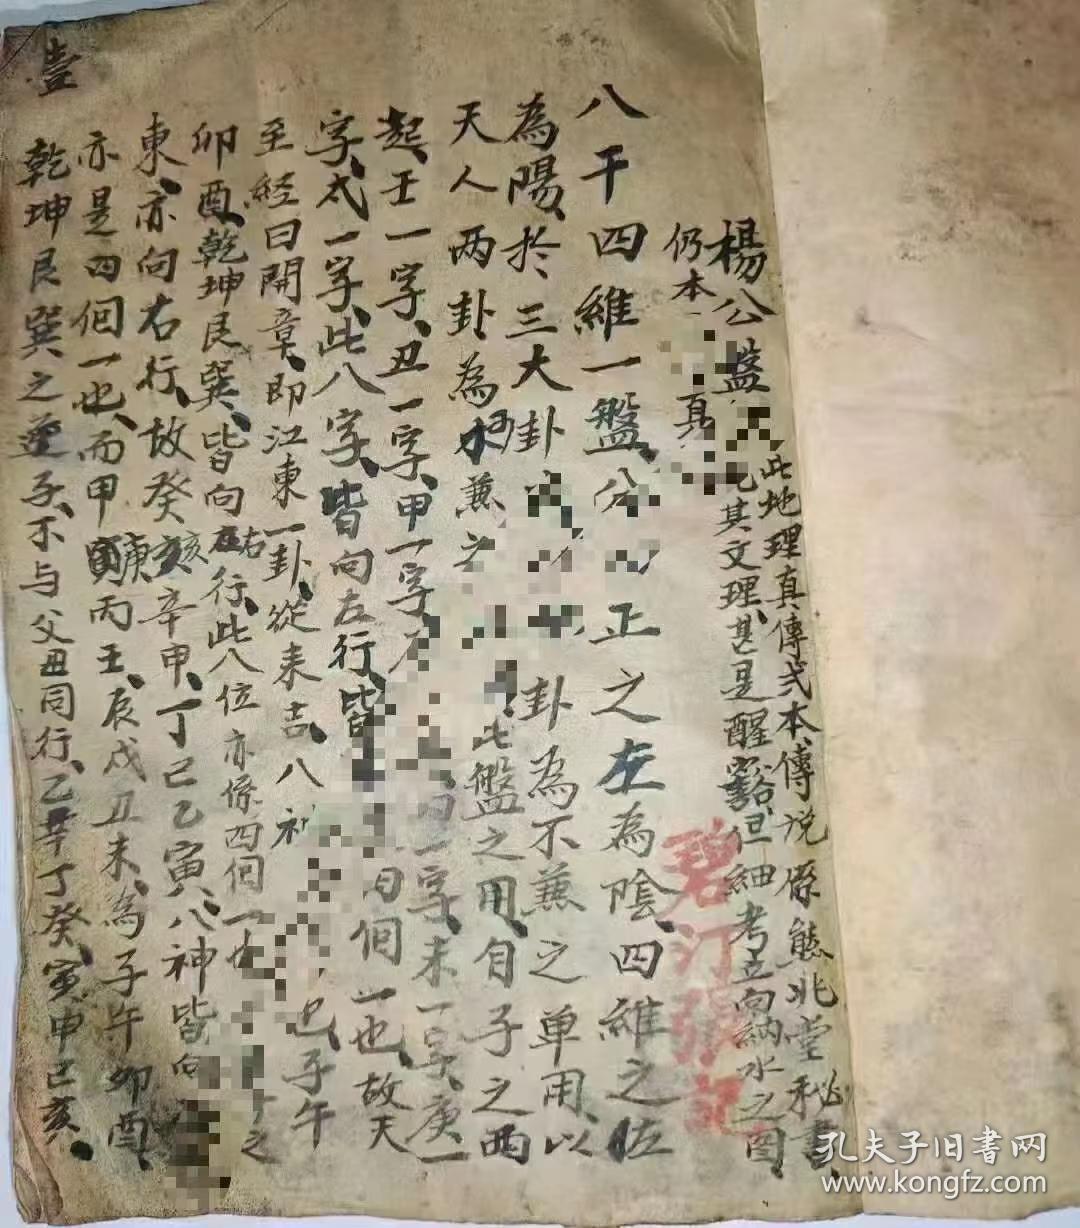 楊公盤
此地理真傳式本傳說係熊兆堂秘書
其文理甚是醒豁但細考立向納水之圖
仍本 真
碧汀張記
八干四維一盤分 正之左為陰四維之位
為陽於三大卦 卦為不兼之單用以
天人兩卦為 兼之 此盤之用自子之西
起壬一字丑一字甲一字 一字未一字庚一
字 一字此八字皆向左行皆 個一也故天
至經曰開章即江東一卦從來吉八神 巳子午
卯酉乾坤艮巽皆向右行此八位亦係四個一也 之
東亦向右行故癸亥辛申丁巳乙寅八神皆向
亦是四個一也而甲庚丙壬辰戌丑未為子午卯酉
乾坤艮巽之逆子不与父母同行乙辛丁癸寅申巳亥
壹
孔夫子旧书网
www.kongfz.com